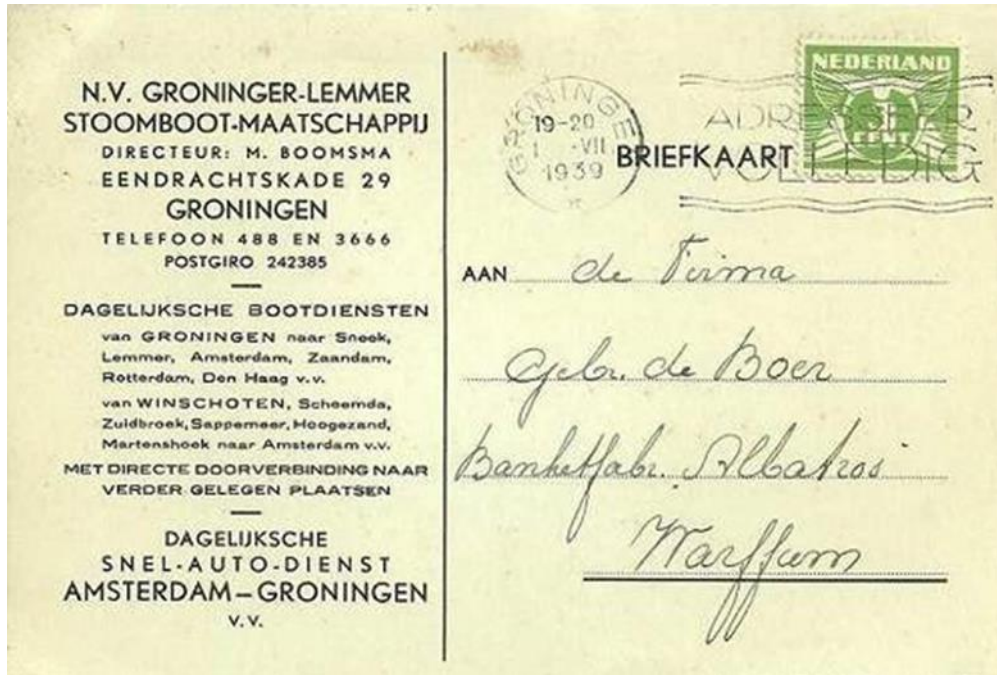 N.V. GRONINGER-LEMMER
STOOMBOOT-MAATSCHAPPIJ
DIRECTEUR: M. BOOMSMA
EENDRACHTSKADE 29
GRONINGEN
TELEFOON 488 EN 3666
POSTGIRO 242385
DAGELIJKSCHE BOOTDIENSTEN
van GRONINGEN naar Sneek,
Lemmer, Amsterdam, Zaandam,
Rotterdam, Den Haag v.v.
van WINSCHOTEN, Scheemda,
Zuidbroek, Sappemeer, Hoogezand,
Martenshoek naar Amsterdam v.v.
MET DIRECTE DOORVERBINDING NAAR
VERDER GELEGEN PLAATSEN
DAGELIJKSCHE
SNEL-AUTO-DIENST
AMSTERDAM – GRONINGEN
v.v.
GRONINGE
19-20
1 -VII
1939
NEDERLAND
CENT
ADRESSEER
VOLLEDIG
BRIEFKAART
AAN de Firma
Gebr. de Boer
Banketfabr. Albatros
Warffum